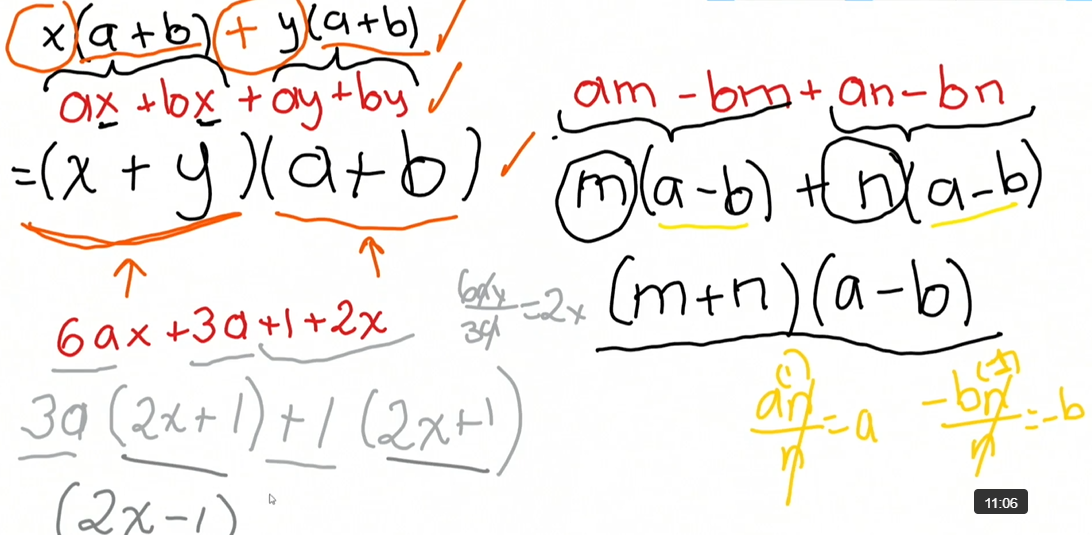 x(a+b) + y(a+b) ✓
ax +bx + ay+by ✓
=(x + y)(a+b) ✓
6ax+3a+1+2x
3a (2x+1) + 1 (2x+1)
(2x-1)
6ax/3a =2x
am -bm+ an-bn
m(a-b) + n(a-b)
(m+n)(a-b)
an/n =a
-bn/n =-b
11:06